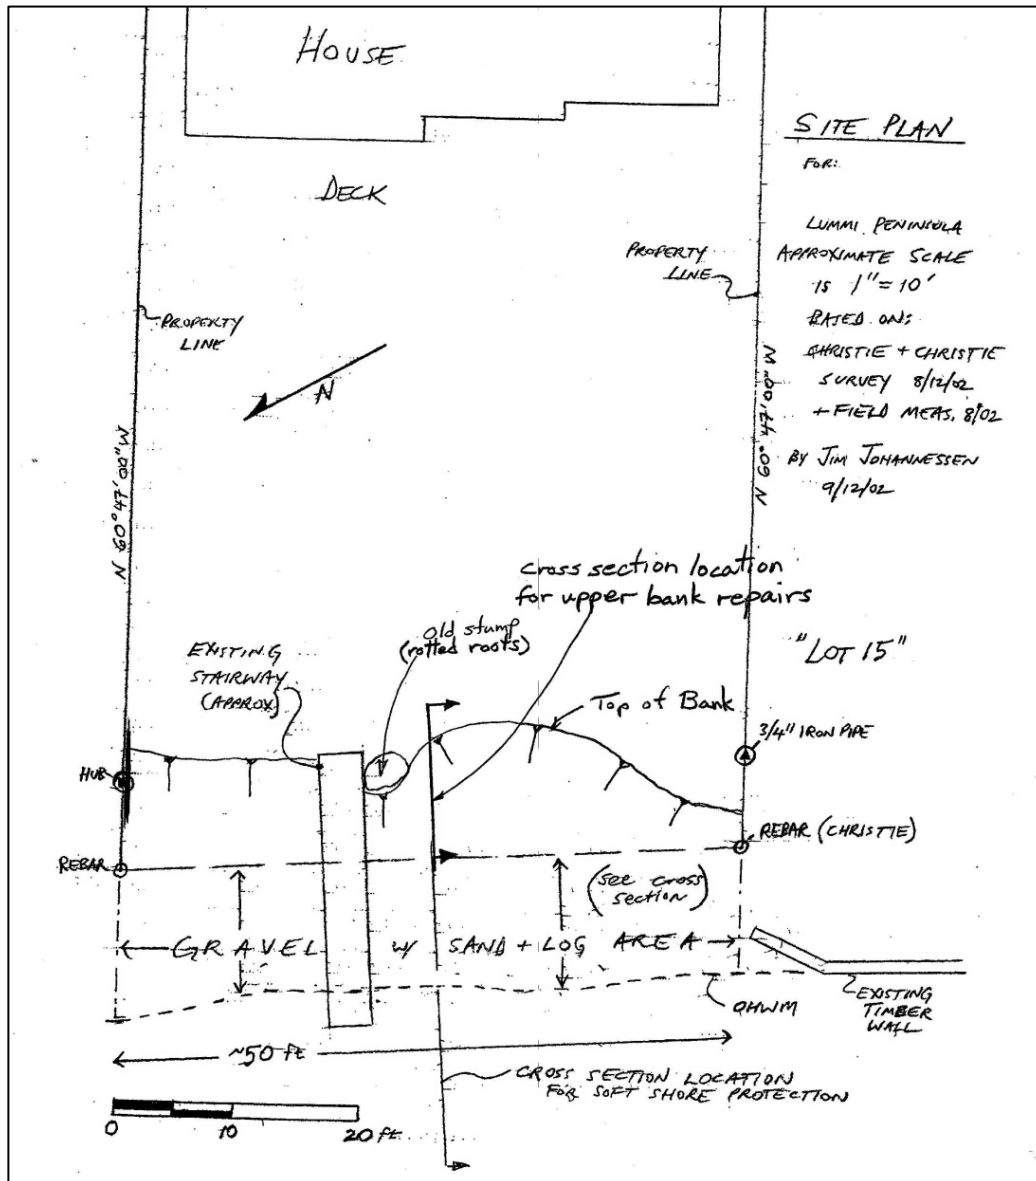 HOUSE
DECK
SITE PLAN
FOR:
LUMMI PENINSULA
APPROXIMATE SCALE
IS 1"=10'
BASED ON:
CHRISTIE + CHRISTIE
SURVEY 8/12/02
+ FIELD MEAS. 8/02
BY JIM JOHANNESSEN
9/12/02
PROPERTY
LINE
PROPERTY
LINE
N
N 60° 47' 00" W
N 60° 47' 00" W
cross section location
for upper bank repairs
old stump
(rotted roots)
EXISTING
STAIRWAY
(APPROX)
"LOT 15"
Top of Bank
3/4" IRON PIPE
HUB
REBAR
REBAR (CHRISTIE)
(see cross
section)
GRAVEL w/ SAND + LOG AREA
OHWM
EXISTING
TIMBER
WALL
~50 ft
CROSS SECTION LOCATION
FOR SOFT SHORE PROTECTION
0 10 20 ft